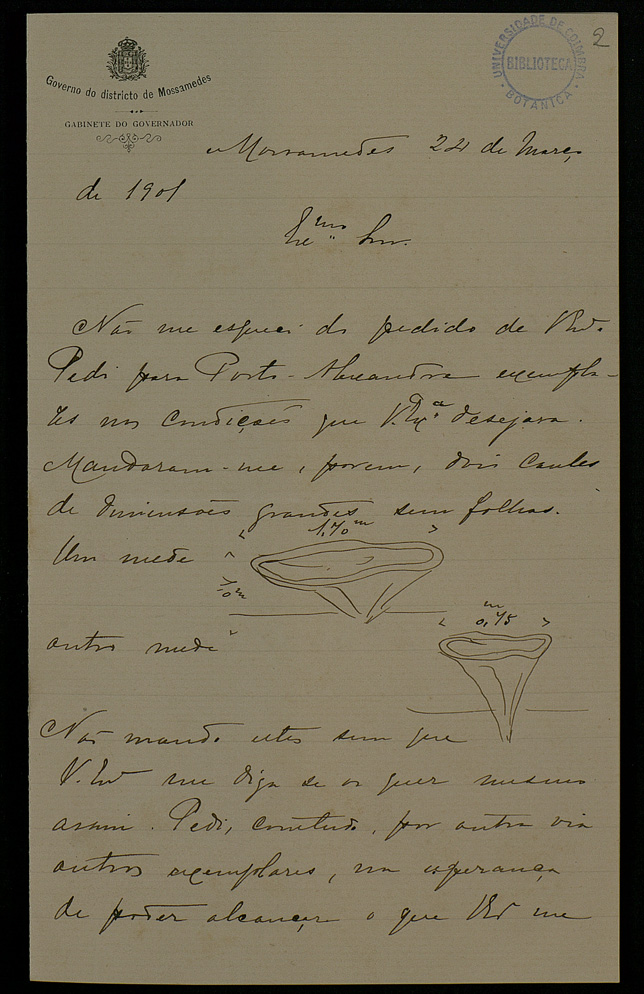 2
UNIVERSIDADE DE COIMBRA
BIBLIOTECA
BOTANICA
Governo do districto de Mossamedes
GABINETE DO GOVERNADOR
Mossamedes 24 de Março
de 1901
Exmo Snr.
Não me esqueci do pedido de
Pedi para Porto-Alexandre exempla-
res nas condições que V. Exª desejava.
Mandaram-me, porem, dois caules
de dimensões grandes sem folhas.
1,70 m
Um mede
0,75 m
outro mede
Não mando estes sem que
V. Exª me diga se os quer mesmo
assim. Pedi, comtudo, por outra via
outros exemplares, na esperança
de poder alcançar o que me